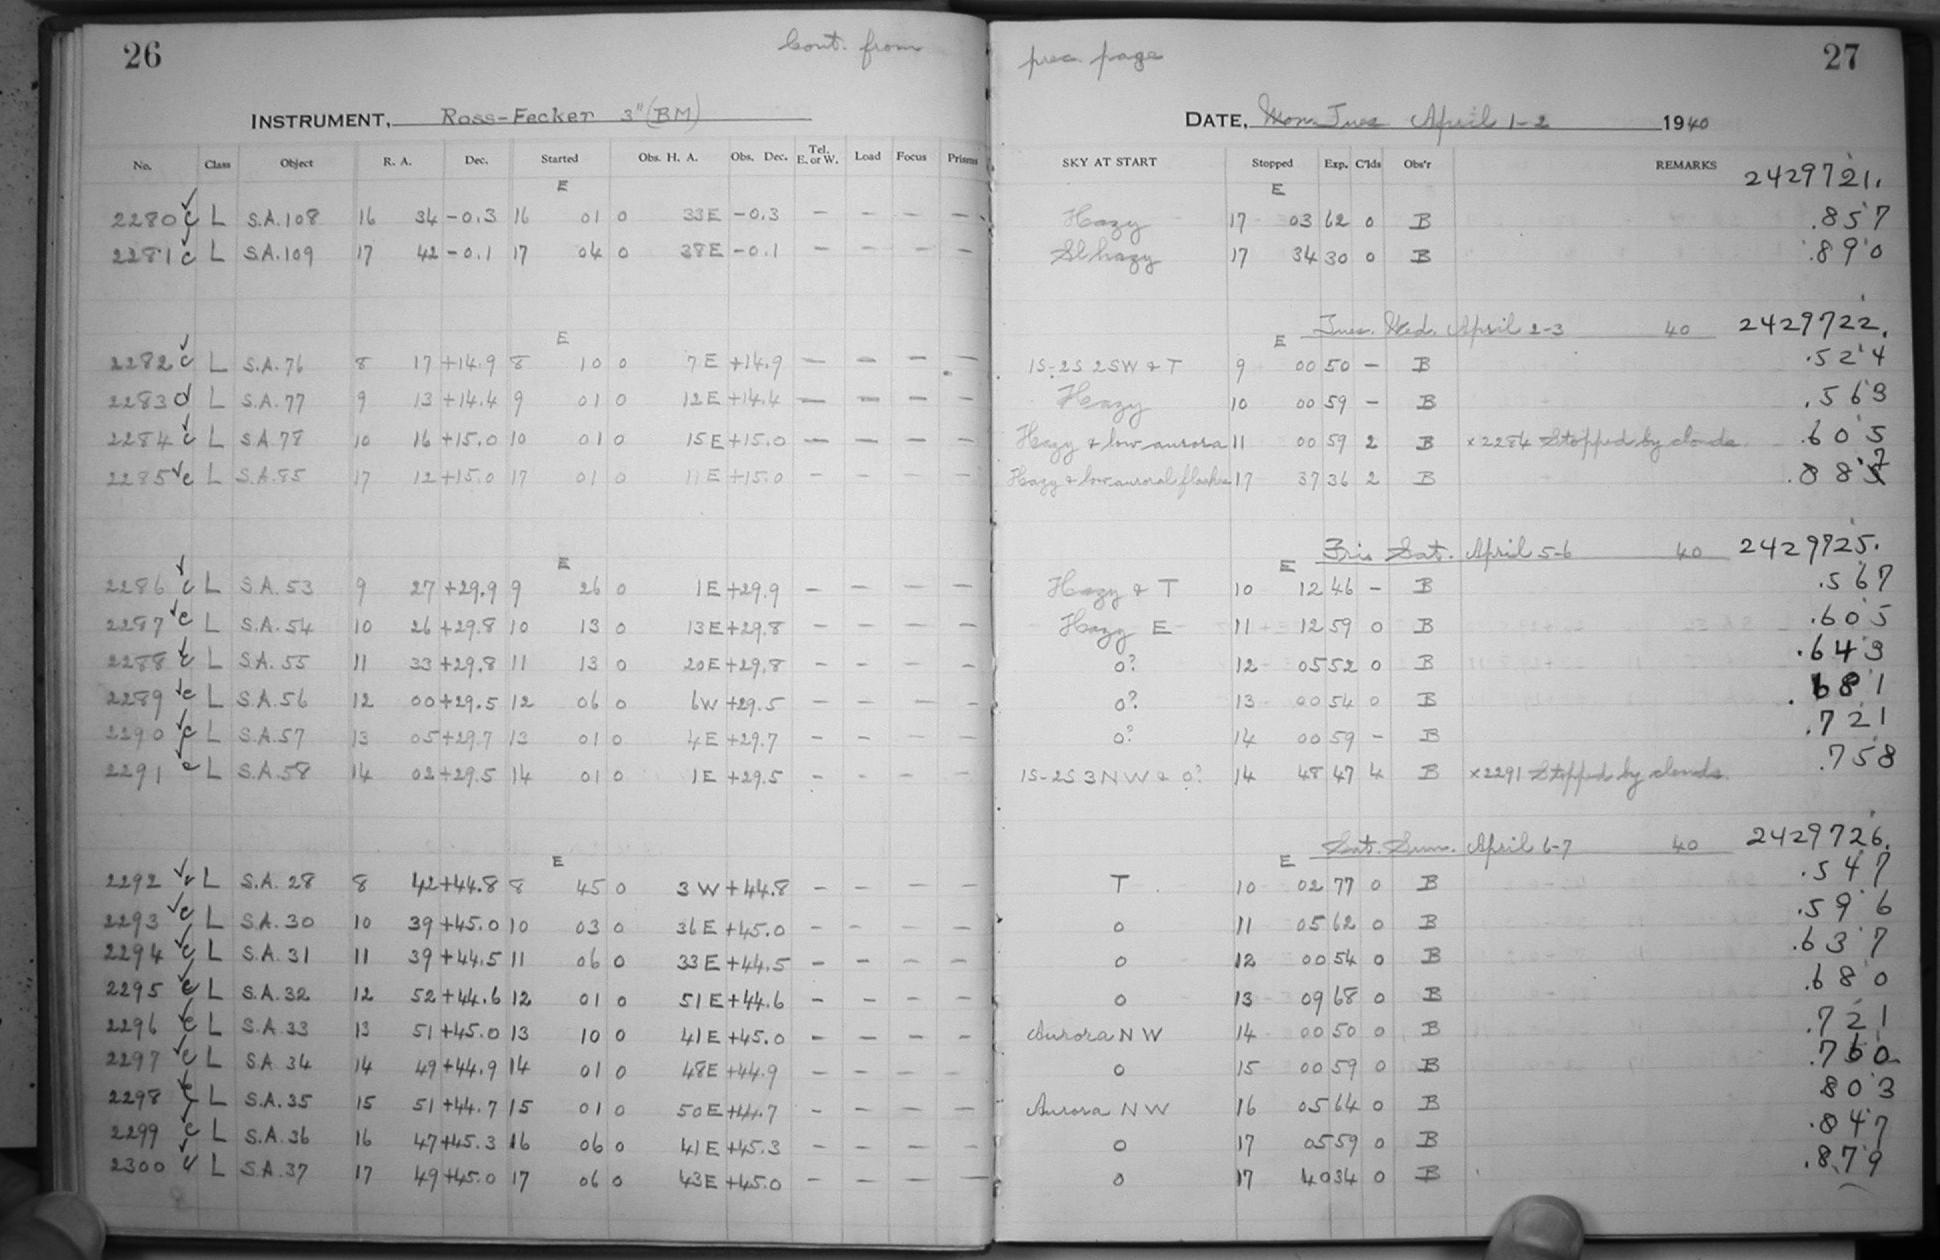 26
Cont. from
INSTRUMENT, Ross-Fecker 3" (BM)
No. Class Object R. A. Dec. Started Obs. H. A. Obs. Dec. Tel. E. or W. Load Focus Prisms
E
2280 c L S.A.108 16 34 -0.3 16 01 0 33E -0.3 — — — —
2281 c L S.A.109 17 42 -0.1 17 04 0 38E -0.1 — — — —
E
2282 c L S.A.76 8 17 +14.9 8 10 0 7E +14.9 — — — —
2283 d L S.A.77 9 13 +14.4 9 01 0 12E +14.4 — — — —
2284 c L S.A.78 10 16 +15.0 10 01 0 15E +15.0 — — — —
2285 c L S.A.85 17 12 +15.0 17 01 0 11E +15.0 — — — —
E
2286 c L S.A.53 9 27 +29.9 9 26 0 1E +29.9 — — — —
2287 c L S.A.54 10 26 +29.8 10 13 0 13E +29.8 — — — —
2288 c L S.A.55 11 33 +29.8 11 13 0 20E +29.8 — — — —
2289 c L S.A.56 12 00 +29.5 12 06 0 6W +29.5 — — — —
2290 c L S.A.57 13 05 +29.7 13 01 0 4E +29.7 — — — —
2291 c L S.A.58 14 02 +29.5 14 01 0 1E +29.5 — — — —
E
2292 L S.A.28 8 42 +44.8 8 45 0 3W +44.8 — — — —
2293 c L S.A.30 10 39 +45.0 10 03 0 36E +45.0 — — — —
2294 c L S.A.31 11 39 +44.5 11 06 0 33E +44.5 — — — —
2295 c L S.A.32 12 52 +44.6 12 01 0 51E +44.6 — — — —
2296 c L S.A.33 13 51 +45.0 13 10 0 41E +45.0 — — — —
2297 c L S.A.34 14 49 +44.9 14 01 0 48E +44.9 — — — —
2298 c L S.A.35 15 51 +44.7 15 01 0 50E +44.7 — — — —
2299 c L S.A.36 16 47 +45.3 16 06 0 41E +45.3 — — — —
2300 c L S.A.37 17 49 +45.0 17 06 0 43E +45.0 — — — —
prec. page
27
DATE, Mon. Tues April 1-2 1940
SKY AT START Stopped Exp. C'lds Obs'r REMARKS 2429721.
E
Hazy 17 03 62 0 B .857
Sl hazy 17 34 30 0 B .890
E Tues. Wed. April 2-3 40 2429722.
1S-2S 2SW & T 9 00 50 — B .524
Hazy 10 00 59 — B .563
Hazy & low aurora 11 00 59 2 B × 2284 Stopped by clouds. .605
Hazy & low auroral flashes 17 37 36 2 B .887
E Fri. Sat. April 5-6 40 2429725.
Hazy & T 10 12 46 — B .567
Hazy E 11 12 59 0 B .605
0? 12 05 52 0 B .643
0? 13 00 54 0 B .681
0? 14 00 59 — B .721
1S-2S 3NW & 0? 14 48 47 4 B × 2291 Stopped by clouds. .758
E Sat. Sun. April 6-7 40 2429726.
T 10 02 77 0 B .547
0 11 05 62 0 B .596
0 12 00 54 0 B .637
0 13 09 68 0 B .680
Aurora NW 14 00 50 0 B .721
0 15 00 59 0 B .760
Aurora NW 16 05 64 0 B 803
0 17 05 59 0 B .847
0 17 40 34 0 B .879